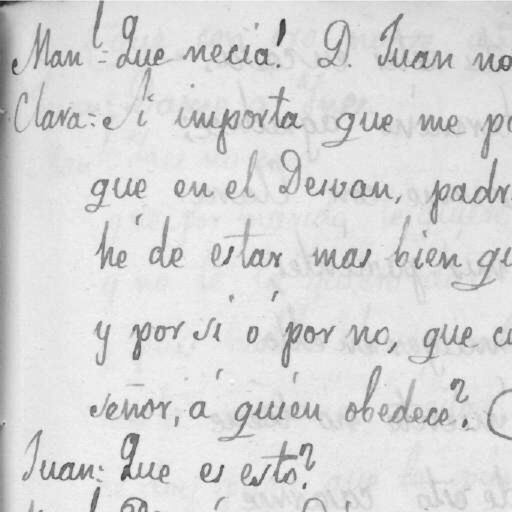 Man¹= Que necia! D. Juan no
Clara= Si importa que me po
que en el Desvan, padr
hé de estar mas bien qu
y por si ó por no, que ca
señor, á quién obedece?
Juan: Que es esto?